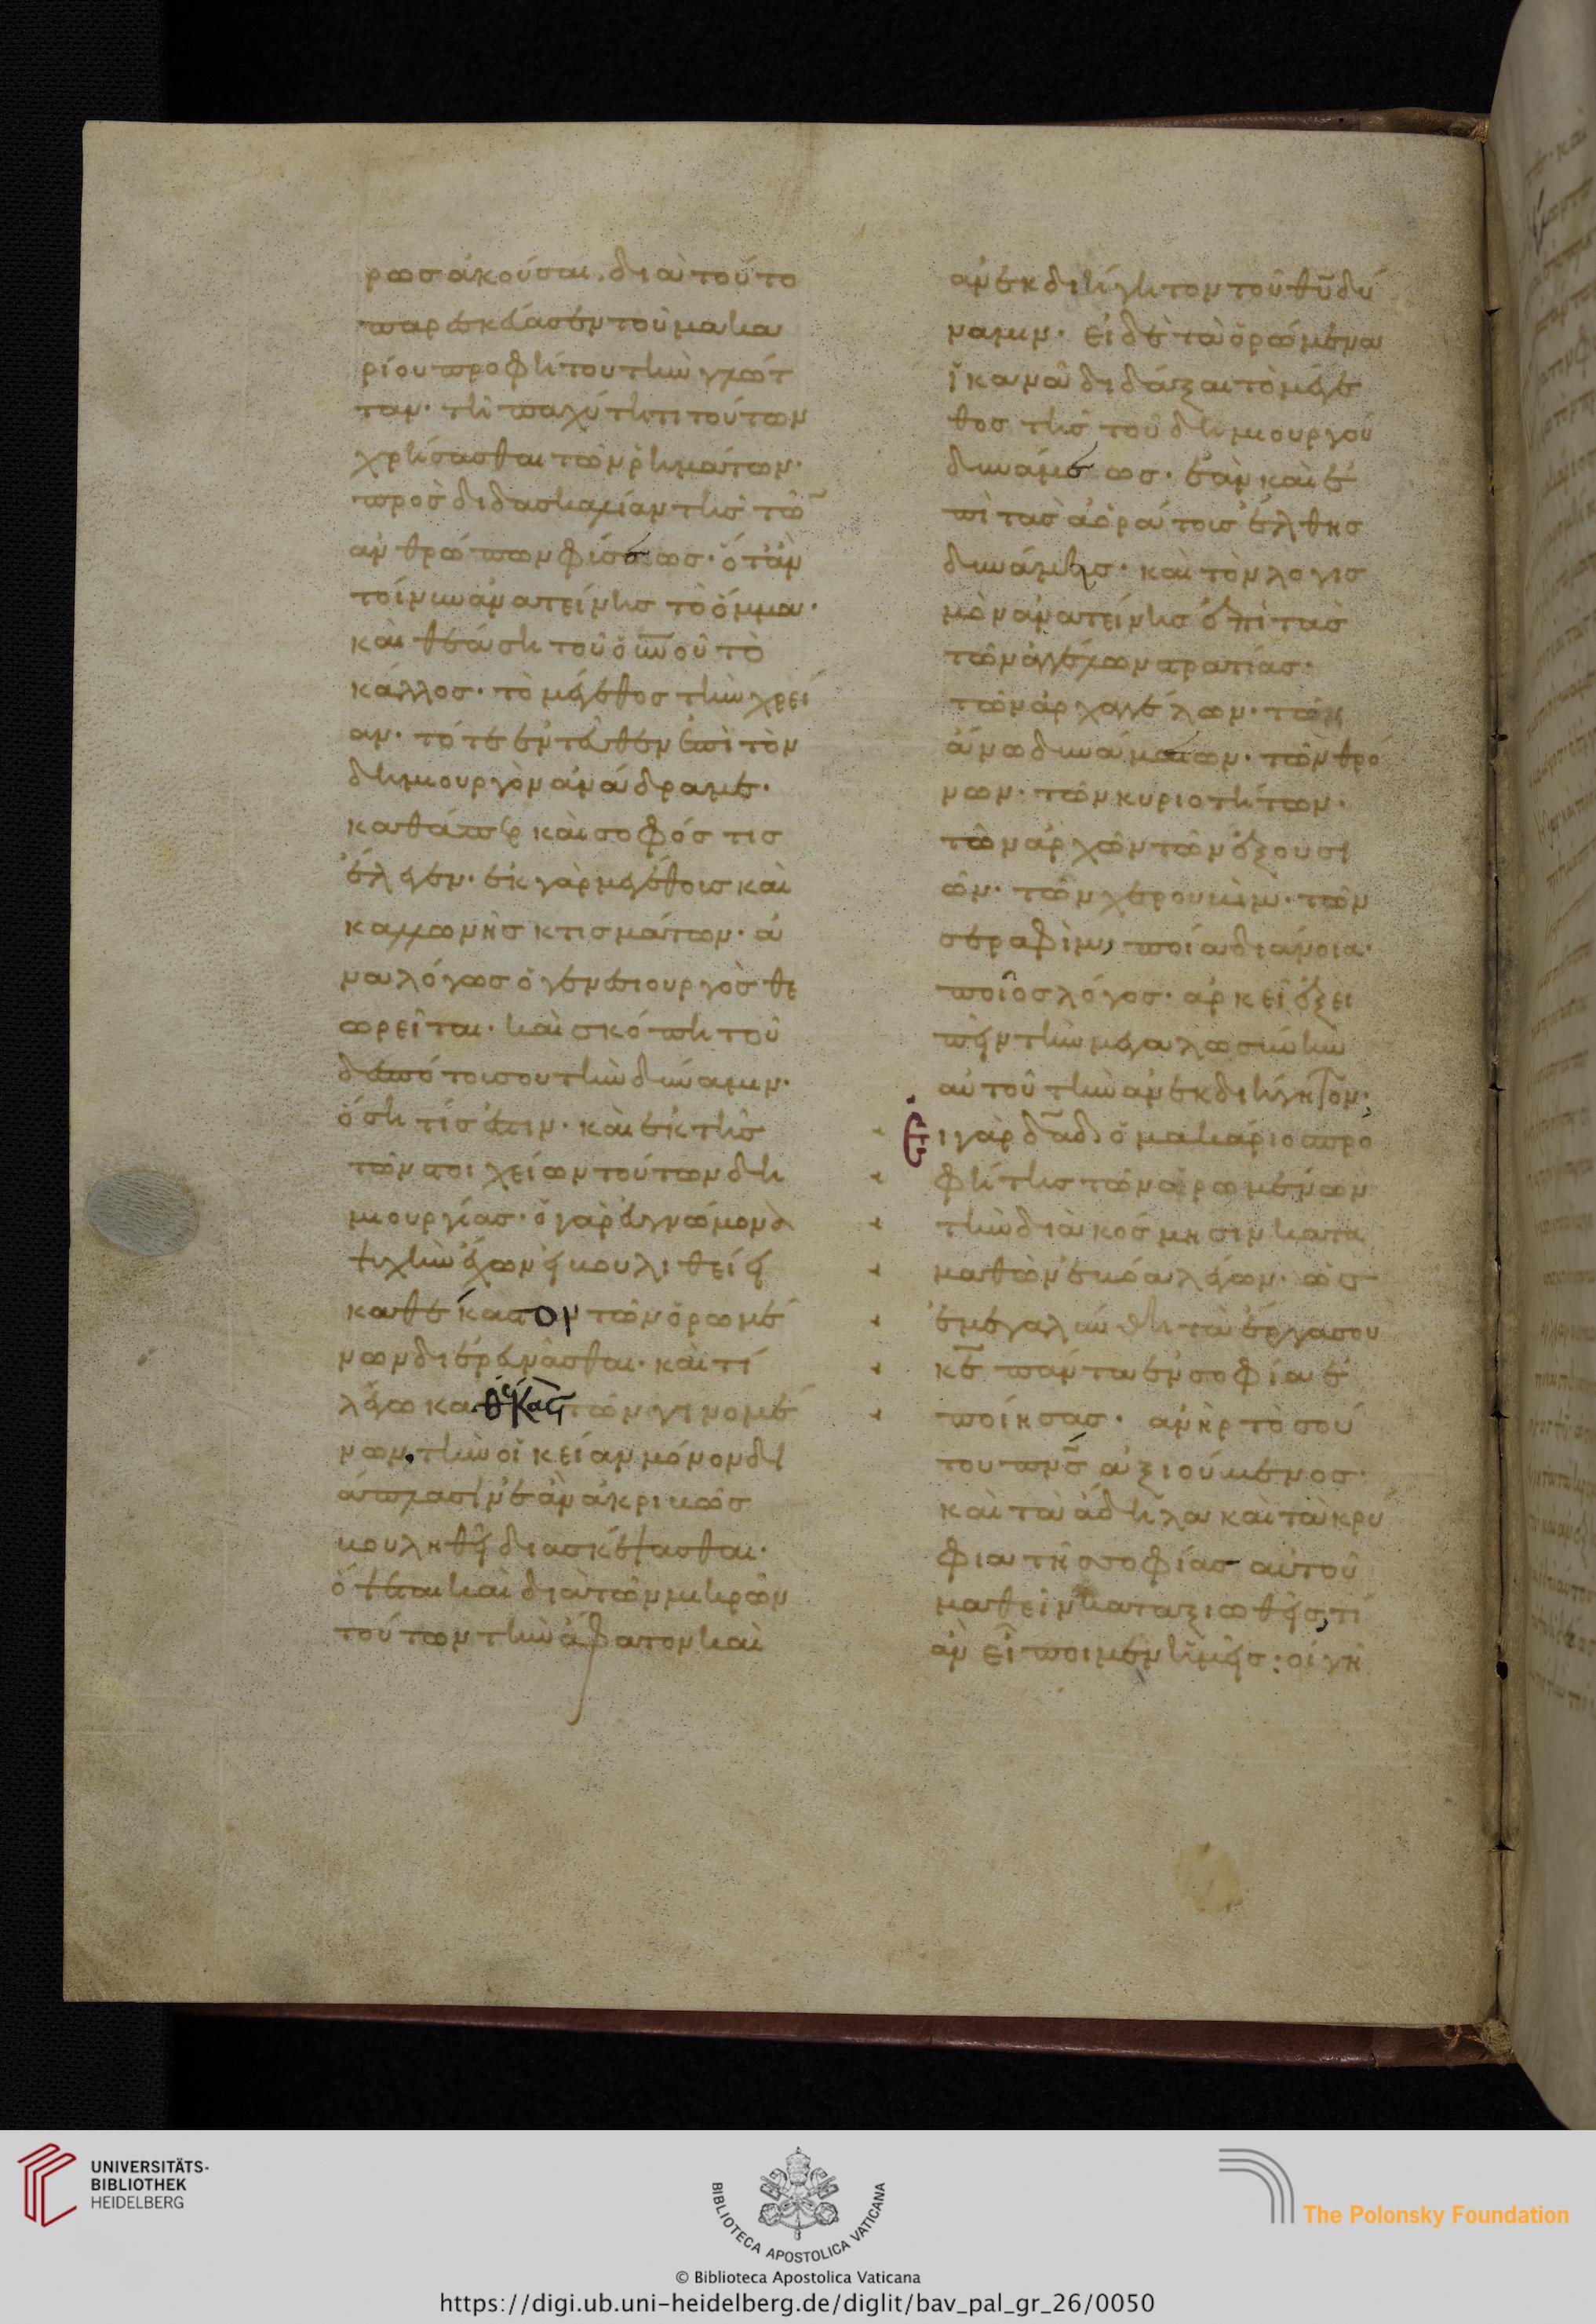 ρως ἀκοῦσαι. διὰ τοῦτο
παρεσκεύασεν τοῦ μακα
ρίου προφήτου τὴν γλῶτ
ταν. τῆ παχύτητι τούτων
χρήσασθαι τῶν ῥημάτων.
πρὸς διδασκαλίαν τῆς τῶ
ἀνθρώπων φύσεως. ὅταν
τοίνυν ἀνατείνης τὸ ὄμμα.
καὶ θεάση τοῦ οὐνοῦ τὸ
κάλλος. τὸ μέγεθος τὴν χρεί
αν. τότε ἐντεῦθεν ἐπὶ τὸν
δημιουργὸν ἀνάδραμε.
καθάπερ καὶ σοφός τις
ἔλεγεν. ἐκ γὰρ μεγέθους καὶ
καλλωνῆς κτισμάτων. ἀ
ναλόγως ὁ γενεσιουργὸς θε
ωρεῖται. καὶ σκόπει τοῦ
δεσπότου σου τὴν δύναμιν.
ὅση τίς ἐστιν. καὶ ἐκ τῆς
τῶν στοιχείων τούτων δη
μιουργίας. ὁ γὰρ εὐγνώμονα
ψυχὴν ἔχων εἰ βουληθείη
καθ' ἕκαστον τῶν ὁρωμέ
νων διερευνᾶσθαι. καὶ τί
λέγω καθ' ἕκαστ τῶν γινομέ
νων. τὴν οἰκείαν μόνον δι
άπλασιν ἐὰν ἀκριβῶς
βουληθῆ διασκέψασθαι.
ὄψεται καὶ διὰ τῶν μικρῶν
τούτων τὴν ἄφατον καὶ
ἀνεκδιήγητον τοῦ θυ δύ
ναμιν. εἰ δὲ τὰ ὁρώμενα
ἱκανὰ διδάξαι τὸ μέγε
θος τῆς τοῦ δημιουργοῦ
δυνάμεως. ἐὰν καὶ ἐ
πὶ τὰς ἀοράτους ἔλθης
δυνάμεις. καὶ τὸν λογισ
μὸν ἀνατείνης ἐπὶ τὰς
τῶν ἀγγέλων στρατιάς.
τῶν ἀρχαγγέλων. τῶν
ἄνω δυνάμεων. τῶν θρό
νων. τῶν κυριοτήτων.
τῶν ἀρχῶν τῶν ἐξουσι
ῶν. τῶν χερουβὶμ. τῶν
σεραφὶμ, ποία διάνοια.
ποῖος λόγος. ἀρκεῖ ἐξει
πεῖν τὴν μεγαλωσύνην
αὐτοῦ τὴν ἀνεκδιήγητον.
Εἰ γὰρ δαδ ὁ μακάριος προ
φήτης τῶν ὁρωμένων
τὴν διακόσμησιν κατα
μαθὼν ἐβόα λέγων. ὡς
ἐμεγαλύνθη τὰ ἔργα σου
κε πάντα ἐν σοφία ἐ
ποίησας. ἀνὴρ τοσού
του πνς ἀξιούμενος.
καὶ τὰ ἄδηλα καὶ τὰ κρύ
φια τῆς σοφίας αὐτοῦ
μαθεῖν καταξιωθείς, τί
ἂν εἴποιμεν ἡμεῖς: οἱ γῆ
UNIVERSITÄTS-
BIBLIOTHEK
HEIDELBERG
BIBLIOTECA APOSTOLICA VATICANA
The Polonsky Foundation
© Biblioteca Apostolica Vaticana
https://digi.ub.uni-heidelberg.de/diglit/bav_pal_gr_26/0050